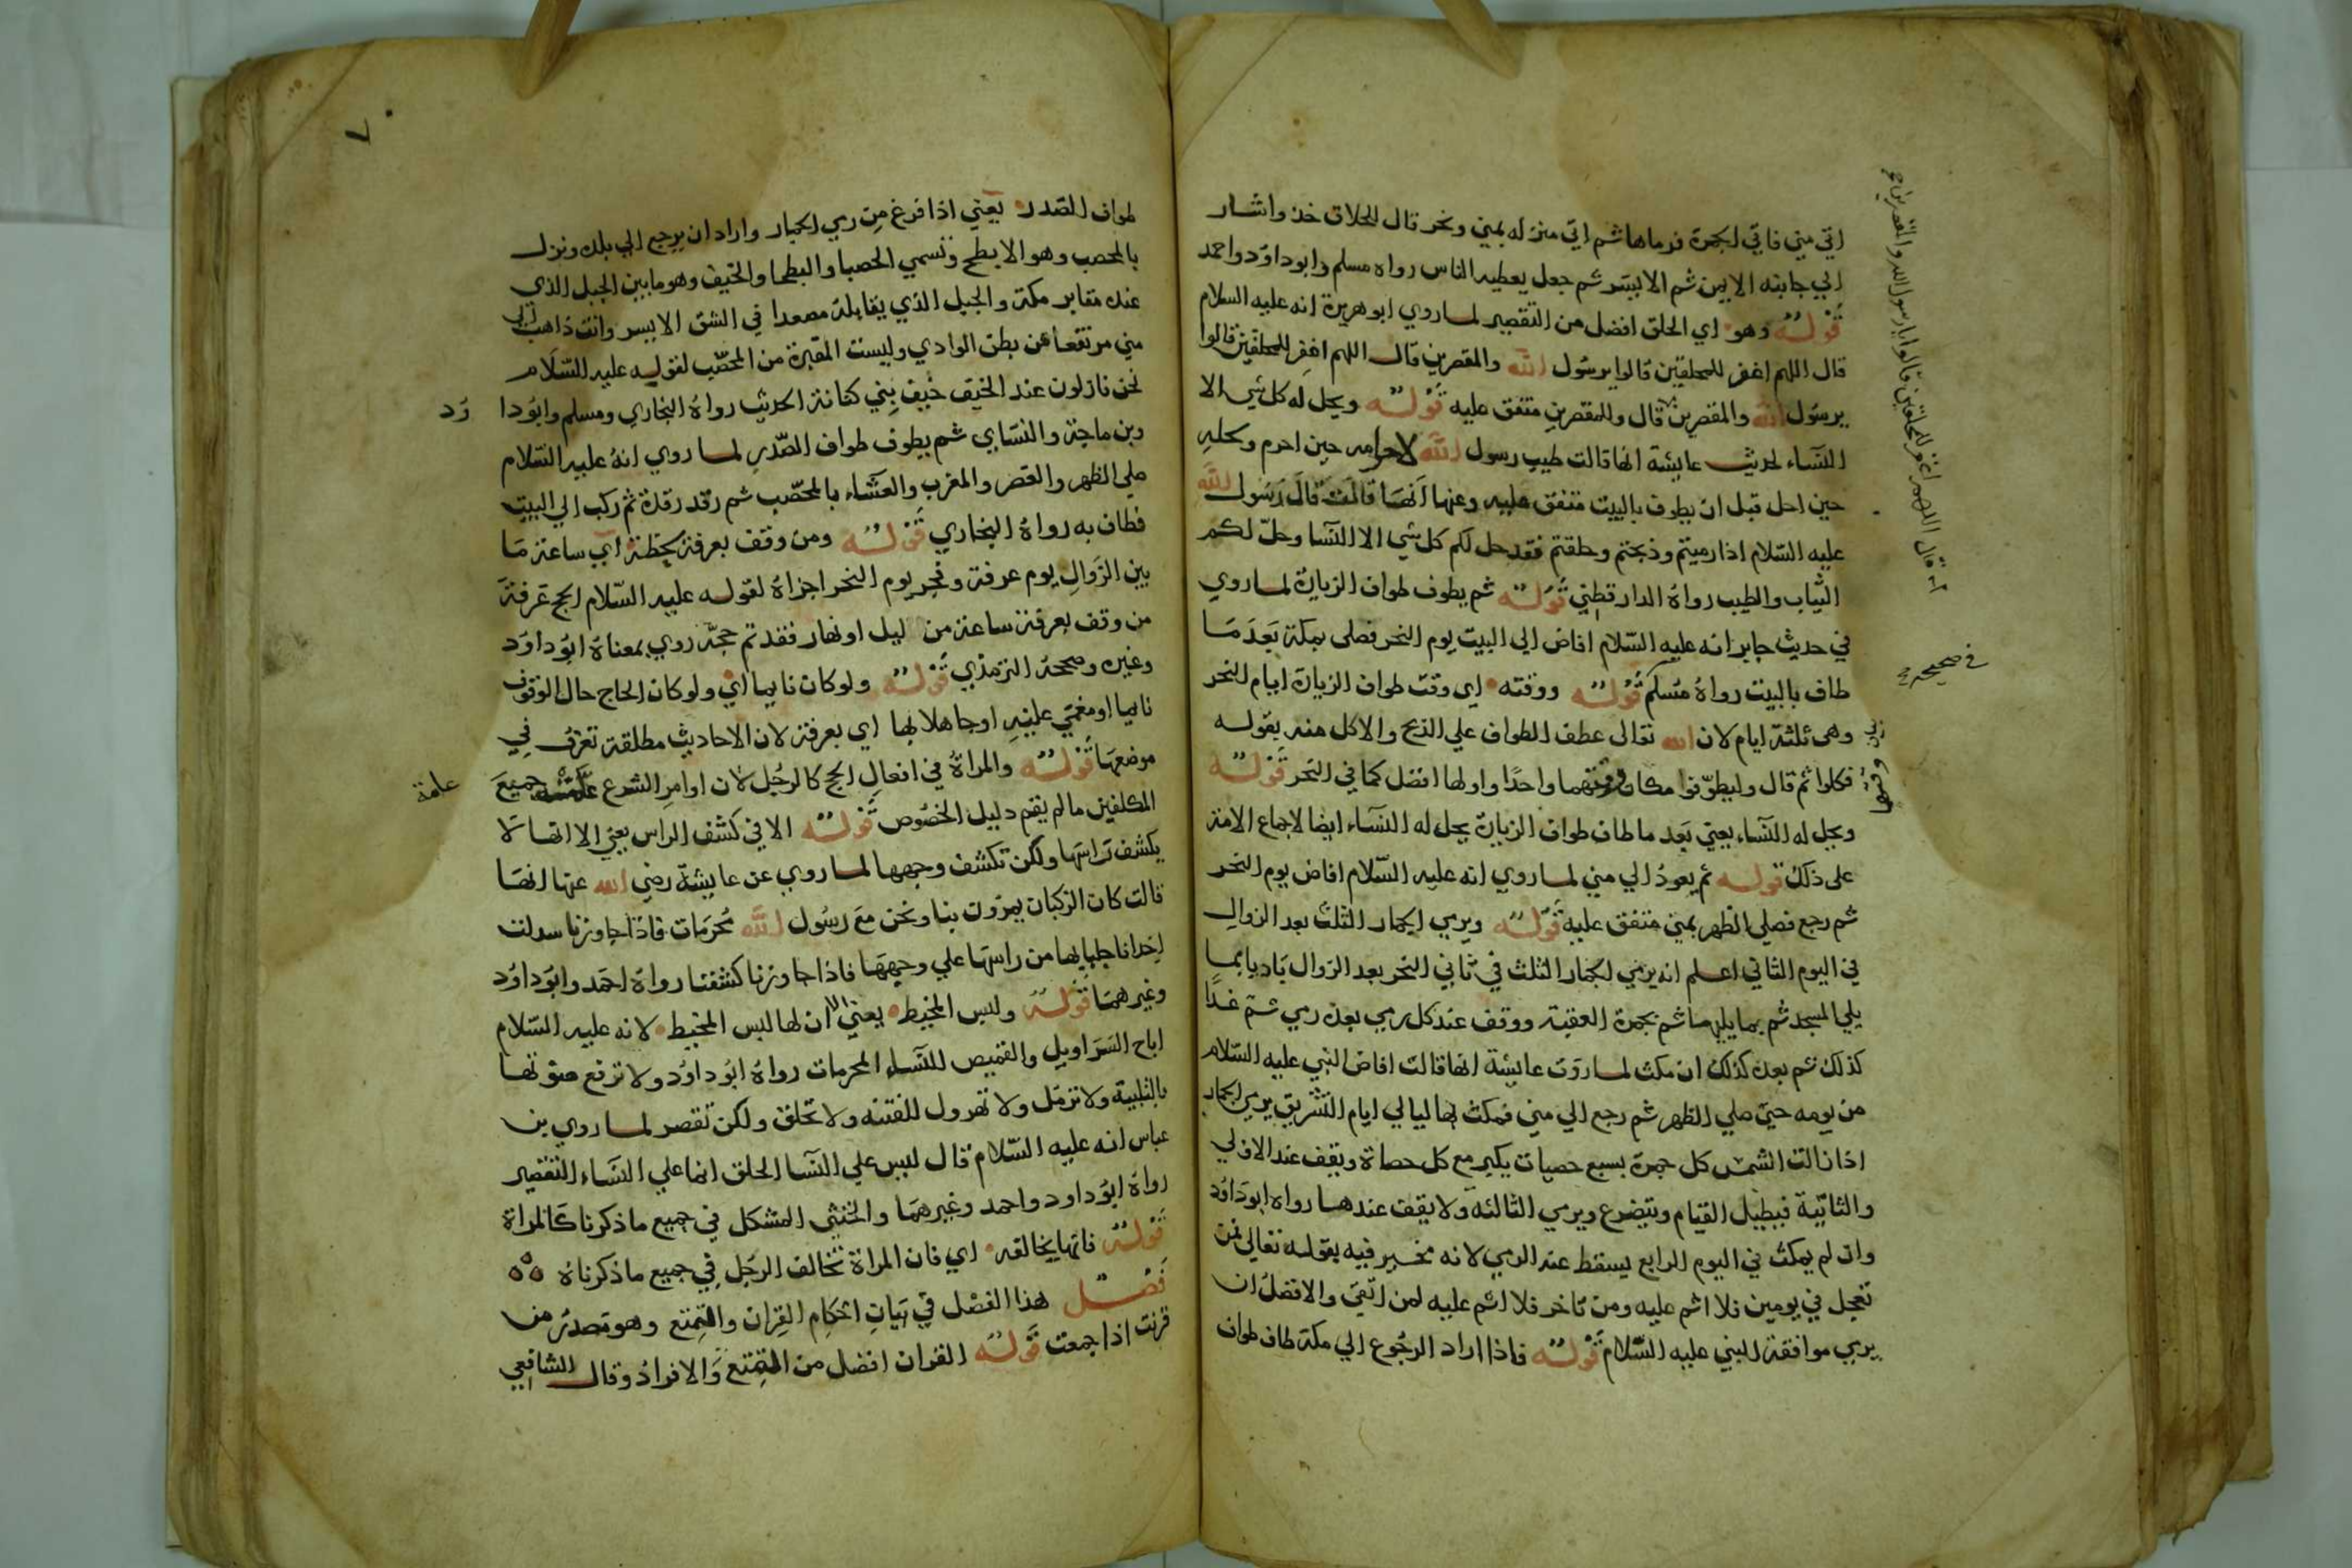 اتي مني فاتي الجمرة فرماها ثم اتي منزله بمني ونحر ثم قال للحلاق خذ واشار
الي جانبه الايمن ثم الايسر ثم جعل يعطيه الناس رواه مسلم وابوداود واحمد
قوله وهو اي الحلق افضل من التقصير لما روي ابوهريرة انه عليه السلام
قال اللهم اغفر للمحلقين قالوا يرسول الله والمقصرين قال اللهم اغفر للمحلقين قالوا
يرسول الله والمقصرين قال وللمقصرين متفق عليه قوله ويحل له كل شي الا
النساء لحديث عايشة انها قالت طيب رسول الله لاحرامه حين احرم ولحله
حين احل قبل ان يطوف بالبيت متفق عليه وعنها انها قالت قال رسول الله
عليه السلام اذا رميتم وذبحتم وحلقتم فقد حل لكم كل شي الا النسا وحل لكم
الثياب والطيب رواه الدارقطني قوله ثم يطوف طواف الزيارة لما روي
في حديث جابر انه عليه السلام افاض الي البيت يوم النحر فصلي بمكة بعد ما
طاف بالبيت رواه مسلم قوله ووقته اي وقت طواف الزيارة ايام النحر
وهي ثلثة ايام لان الله تعالى عطف الطواف علي الذبح والاكل منه بقوله
فكلوا ثم قال وليطوفوا فكان وقتهما واحدا واولها افضل كما في النحر قوله
ويحل له النساء يعني بعد ما طاف طواف الزيارة يحل له النساء ايضا لاجماع الامة
على ذلك قوله ثم يعود الي مني لما روي انه عليه السلام افاض يوم النحر
ثم رجع فصلي الظهر بمني متفق عليه قوله ويرمي الجمار الثلث بعد الزوال
في اليوم الثاني اعلم انه يرمي الجمار الثلث في ثاني النحر بعد الزوال باديا بما
يلي المسجد ثم بما يليها ثم بجمرة العقبة ووقف عند كل رمي بعده رمي ثم غدا
كذلك ثم بعده كذلك ان مكث لما روت عايشة انها قالت افاض النبي عليه السلام
من يومه حين صلي الظهر ثم رجع الي مني فمكث بها ليالي ايام التشريق يرمي الجمار
اذا زالت الشمس كل جمرة بسبع حصيات يكبر مع كل حصاة ويقف عند الاولي
والثانية فيطيل القيام ويتضرع ويرمي الثالثة ولا يقف عندها رواه ابوداود
وان لم يمكث في اليوم الرابع يسقط عنه الرمي لانه مخير فيه بقوله تعالي فمن
تعجل في يومين فلا اثم عليه ومن تاخر فلا اثم عليه لمن اتقي والافضل ان
يرمي موافقة للنبي عليه السلام قوله فاذا اراد الرجوع الي مكة طاف طواف
قال اللهم اغفر للمحلقين قالوا يارسول الله والمقصرين
في صحيحه
وقتها
٧٠
طواف الصدر يعني اذا فرغ من رمي الجمار واراد ان يرجع الي بلده ونزل
بالمحصب وهو الابطح وتسمي الحصبا والبطحا والخيف وهو ما بين الجبل الذي
عنده مقابر مكة والجبل الذي يقابله مصعدا في الشق الايسر وانت ذاهب الي
مني مرتفعا عن بطن الوادي وليست المقبرة من المحصب لقوله عليه السلام
نحن نازلون عند الخيف خيف بني كنانة الحديث رواه البخاري ومسلم وابودا ود
وبن ماجة والنسايي ثم يطوف طواف الصدر لما روي انه عليه السلام
صلي الظهر والعصر والمغرب والعشاء بالمحصب ثم رقد رقدة ثم ركب الي البيت
فطاف به رواه البخاري قوله ومن وقف بعرفة لحظة اي ساعة ما
بين الزوال يوم عرفة وفجر يوم النحر اجزاه لقوله عليه السلام الحج عرفة
من وقف بعرفة ساعة من ليل او نهار فقد تم حجه روي بمعناه ابوداود
وغيره وصححه الترمذي قوله ولو كان نايما اي ولو كان الحاج حال الوقوف
نايما او مغمي عليه او جاهلا بها اي بعرفة لان الاحاديث مطلقة تعرف في
موضعها قوله والمراة في افعال الحج كالرجل لان اوامر الشرع جميع
عامة
المكلفين ما لم يقم دليل الخصوص قوله الا في كشف الراس يعني الا انها لا
يكشف راسها ولكن تكشف وجهها لما روي عن عايشة رضي الله عنها انها
قالت كان الركبان يمرون بنا ونحن مع رسول الله محرمات فاذا جاوزنا سدلت
احدانا جلبابها من راسها علي وجهها فاذا جاوزنا كشفنا رواه احمد وابوداود
وغيرهما قوله ولبس المخيط يعني الا ان لها لبس المخيط لانه عليه السلام
اباح السراويل والقميص للنساء المحرمات رواه ابوداود ولا ترفع صوتها
بالتلبية ولا ترمل ولا تهرول للفتنة ولا تحلق ولكن تقصر لما روي بن
عباس انه عليه السلام قال ليس علي النسا الحلق انما علي النساء التقصير
رواه ابوداود واحمد وغيرهما والخنثي المشكل في جميع ما ذكرنا كالمراة
قوله فانها يخالفه اي فان المراة تخالف الرجل في جميع ما ذكرناه
فصل هذا الفصل في بيان احكام القران والتمتع وهو مصدر من
قرنت اذا جمعت قوله القران افضل من التمتع والافراد وقال الشافعي